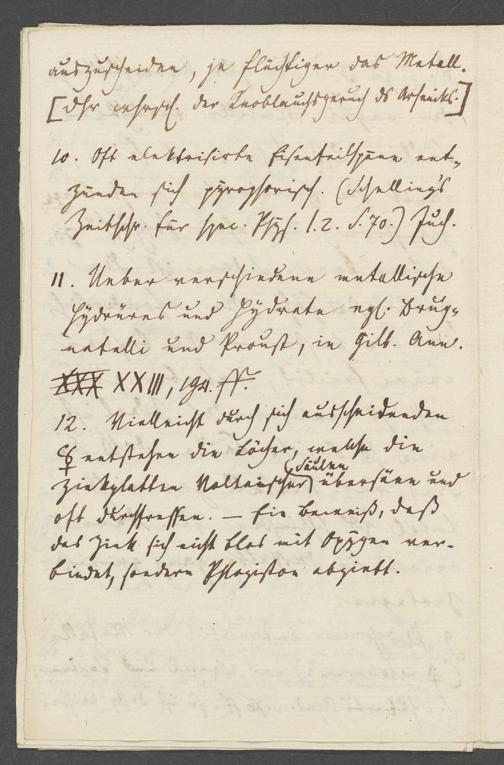 auszuscheiden, je flüchtiger das Metall.
[Dhr der Knoblauchsgeruch ds Arseniks.]
10. Oft elektrisirte Eisenfeilspäne ent-
zünden sich pyrophorisch. (Schellings
Zeitschr. für spec. Phys. I. 2. S. 70.) Juch.
11. Ueber verschiedene metallische
Hydrüres und Hydrate vgl. Brug-
natelli und Proust, in Gilb. Ann.
XXX XXIII, 194. ff.
12. Vielleicht durch sich ausscheidenden
entstehen die Löcher, welche die
Zinkplatten Voltaischer Säulen übersäen und
oft durchtreffen. — Ein Beweiß, daß
das Zink sich nicht blos mit Oxygen ver-
bindet, sondern Phlogiston abgiebt.